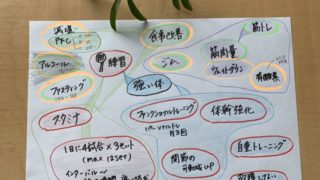 減塩
PFC
食事改善
筋トレ
アルコール
練習
ジム
筋肉量
ウェイトダウン
有酸素
ファスティング
強い体
スタミナ
ファンクショナルトレーニング
月3回
体幹強化
1日に4試合×3セット
(max 12set)
インターバル〜
関節の
可動域UP
自重トレーニング
故障しない